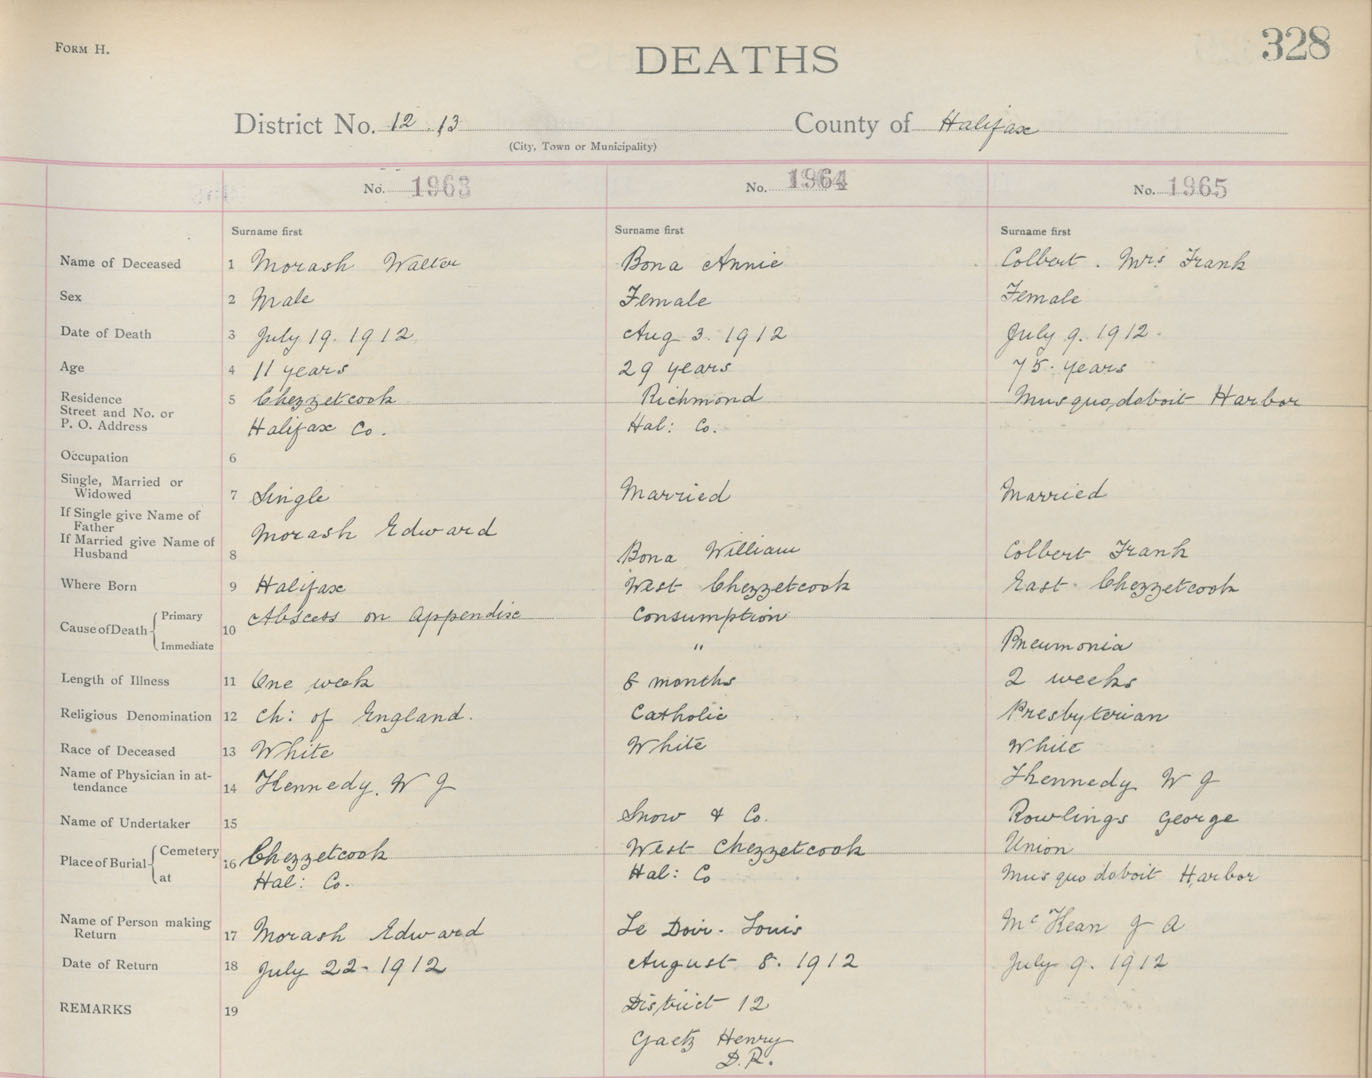 FORM H.
328
DEATHS
District No. 12.13 County of Halifax
(City, Town or Municipality)
No. 1963 No. 1964 No. 1965
Surname first Surname first Surname first
Name of Deceased 1 Morash Walter Bona Annie Colbert. Mrs Frank
Sex 2 Male Female Female
Date of Death 3 July 19. 1912 Aug 3. 1912 July 9. 1912.
Age 4 11 years 29 years 75. years
Residence 5 Chezzetcook Richmond Musquodoboit Harbor
Street and No. or
P. O. Address Halifax Co. Hal: Co.
Occupation 6
Single, Married or
Widowed 7 Single Married Married
If Single give Name of
Father Morash Edward
If Married give Name of
Husband 8 Bona William Colbert Frank
Where Born 9 Halifax West Chezzetcook East Chezzetcook
Cause of Death Primary 10 Abscess on appendix Consumption
Immediate " Pneumonia
Length of Illness 11 One week 8 months 2 weeks
Religious Denomination 12 Ch: of England. Catholic Presbyterian
Race of Deceased 13 White White White
Name of Physician in at-
tendance 14 Kennedy. W J Kennedy W J
Name of Undertaker 15 Snow & Co. Rowlings George
Place of Burial Cemetery 16 Chezzetcook West Chezzetcook Union
at Hal: Co. Hal: Co Musquodoboit Harbor
Name of Person making
Return 17 Morash Edward Le Louis McKean J A
Date of Return 18 July 22-1912 August 8. 1912 July 9. 1912
REMARKS 19 District 12
Gaetz Henry
D.R.